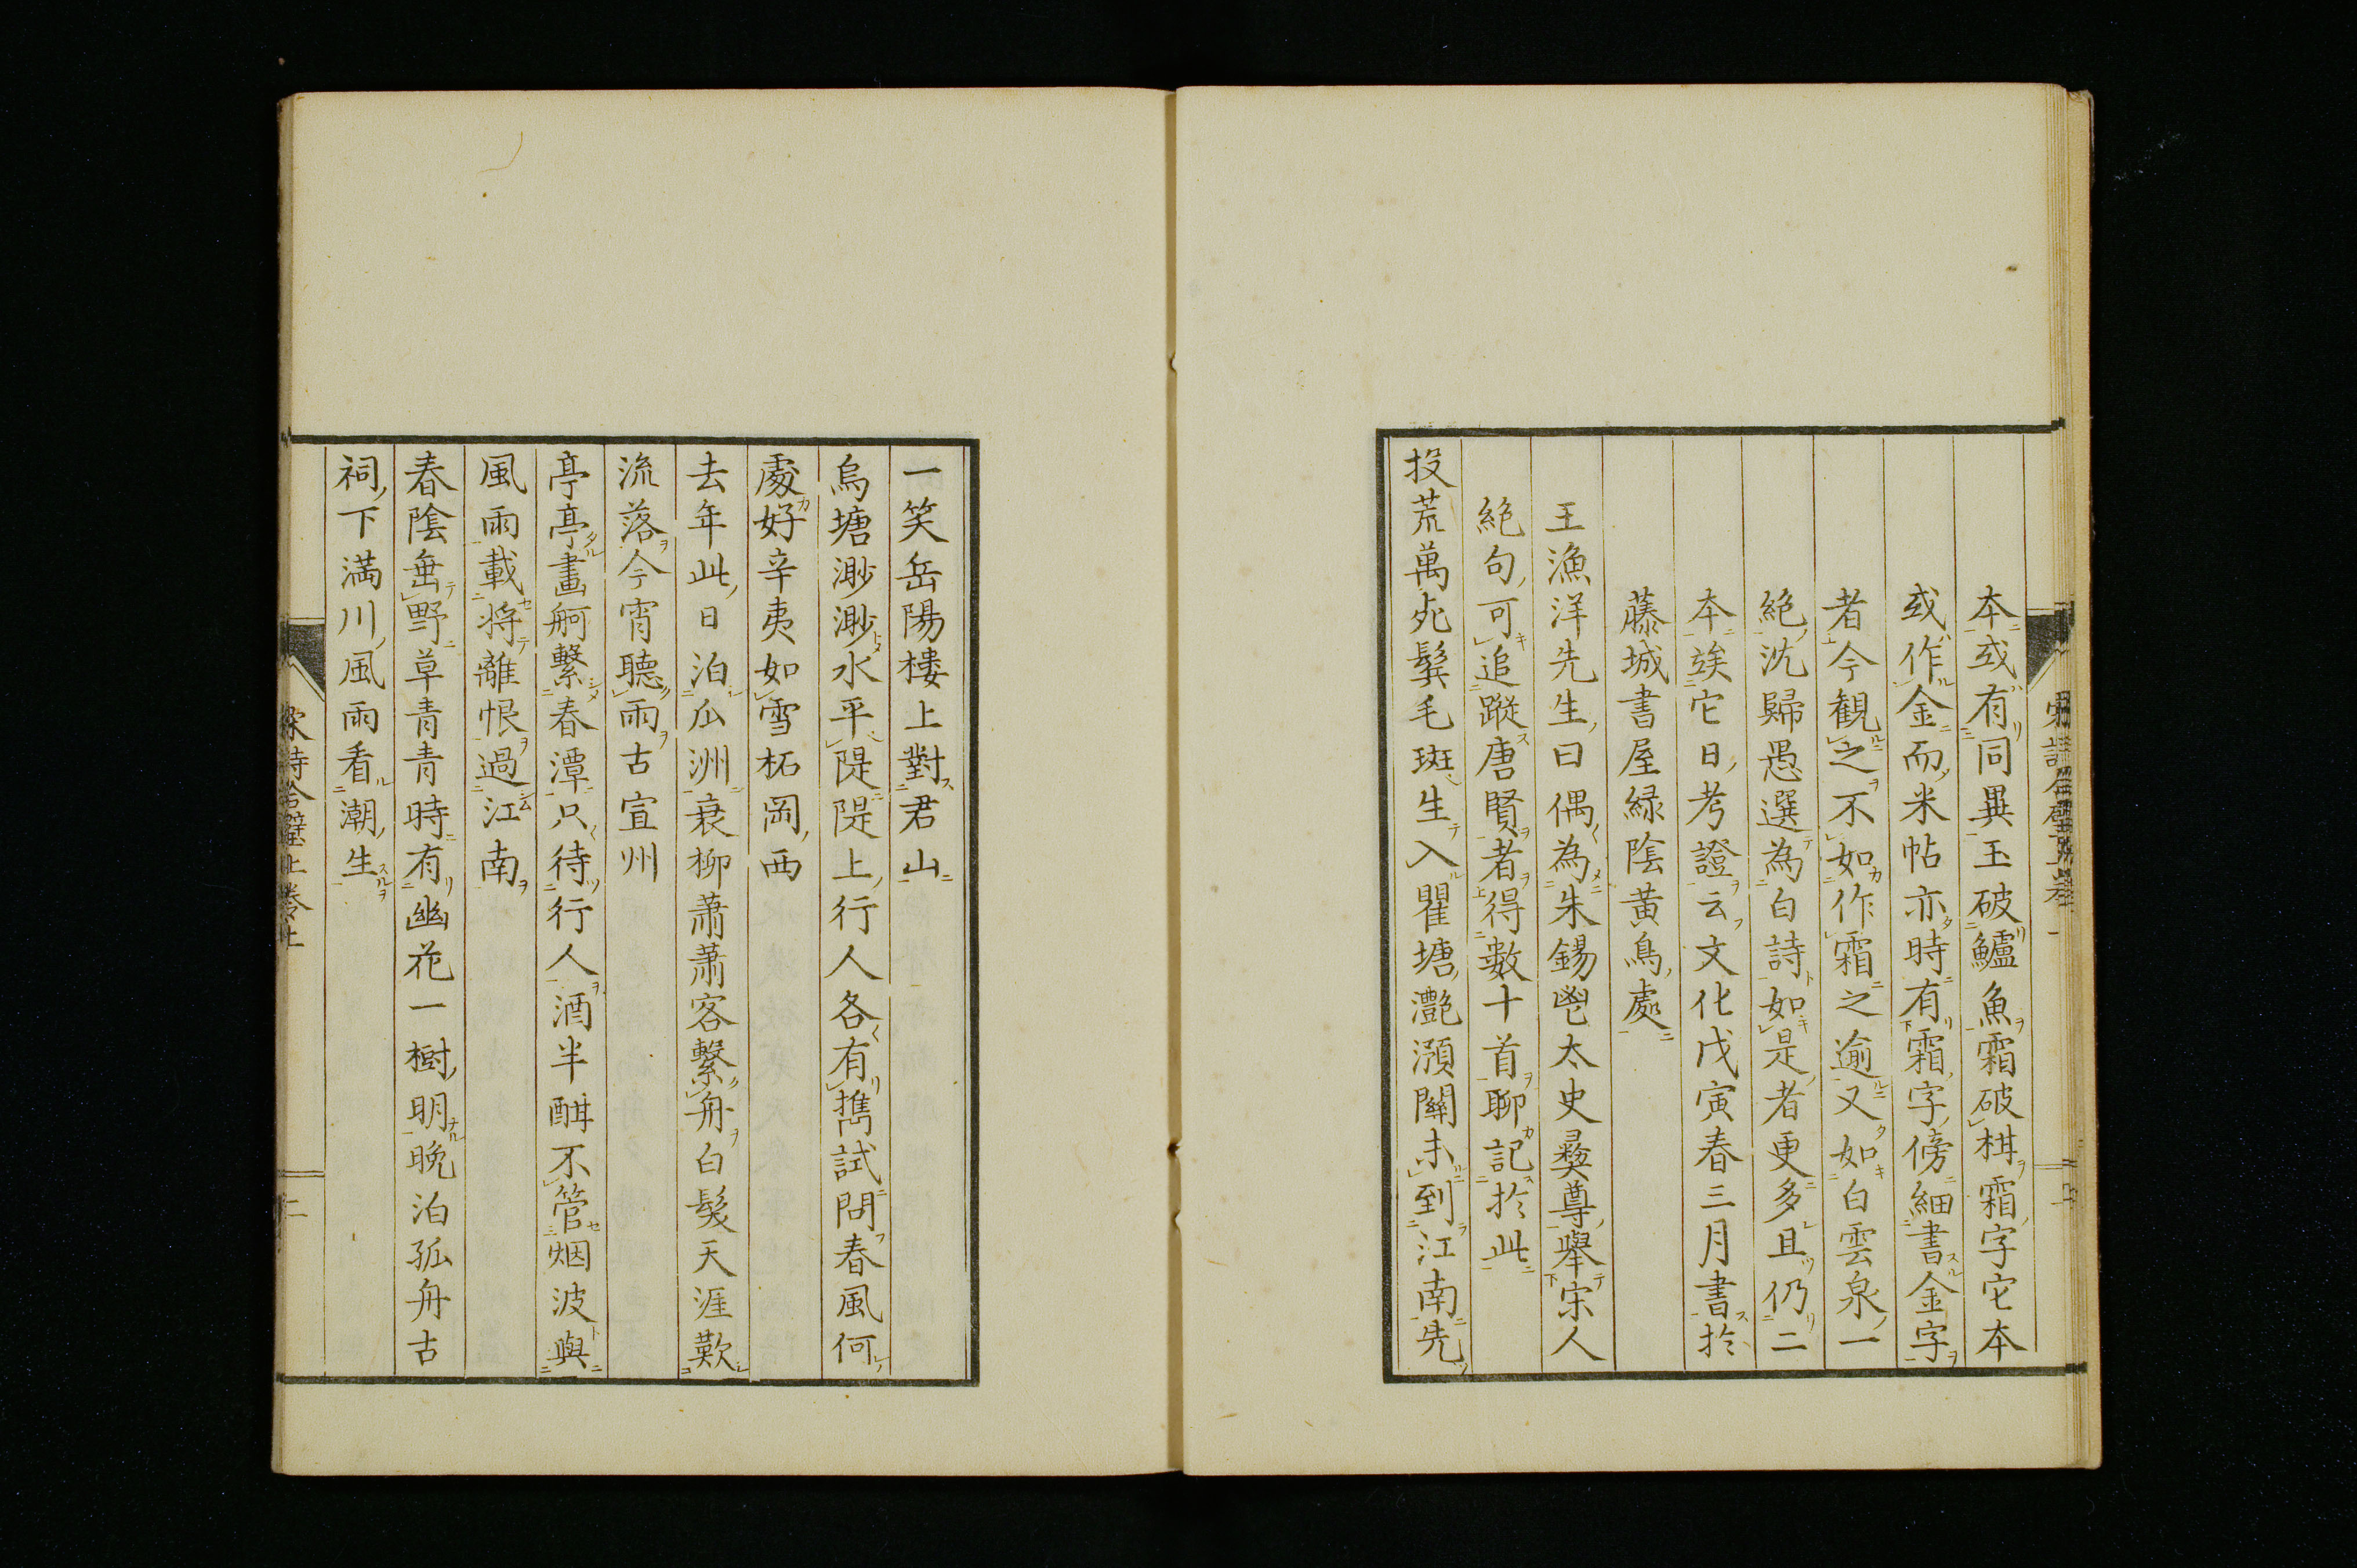 本或有同異玉破鱸魚霜破柑霜字它本
或作金而米帖亦時有霜字傍細書金字
者今観之不如作霜之逾又如白雲泉一
絶沈歸愚選為白詩如是者更多且仍二
本竢它日考證云文化戊寅春三月書於
藤城書屋緑陰黃鳥處
王漁洋先生曰偶為朱錫鬯太史彝尊舉宋人
絕句可追蹤唐賢者得數十首聊記於此
投荒萬死鬢毛斑生入瞿塘灔澦關未到江南先
一笑岳陽樓上對君山
烏塘渺渺水平隄隄上行人各有擕試問春風何
處好辛夷如雪柘岡西
去年此日泊瓜洲衰柳蕭蕭客繫舟白髮天涯歎
流落今宵聽雨古宣州
亭亭畫舸繫春潭只待行人酒半酣不管烟波與
風雨載将離恨過江南
春陰垂野草青青時有幽花一樹明晚泊孤舟古
祠下満川風雨看潮生
宋詩合璧上卷上
二